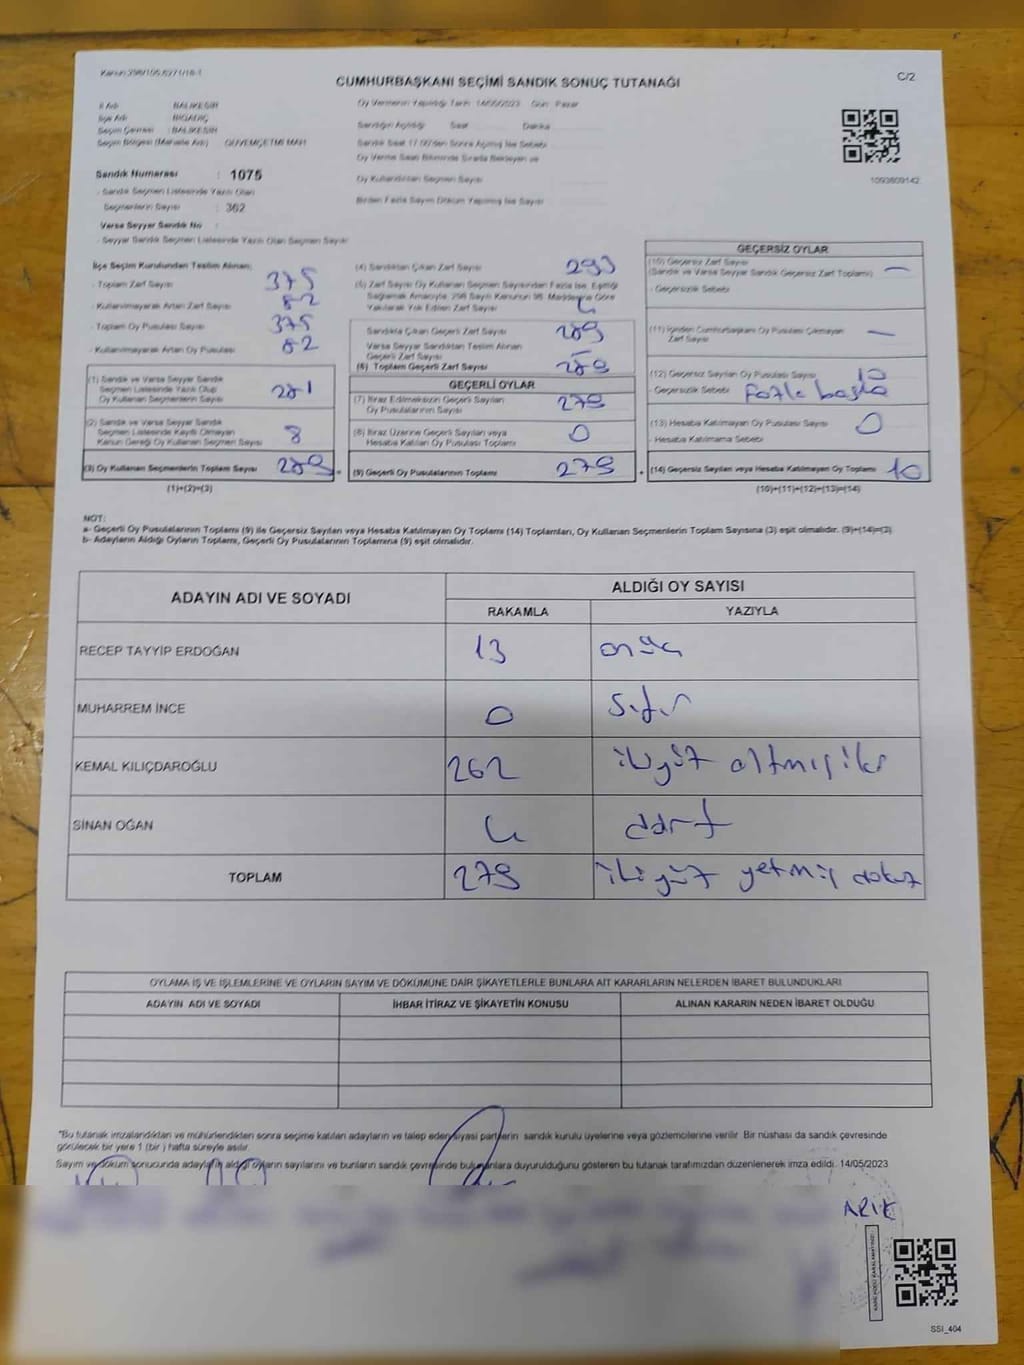 Kanun:298/105,6271/18-1
CUMHURBAŞKANI SEÇİMİ SANDIK SONUÇ TUTANAĞI
C/2
İl Adı BALIKESİR
İlçe Adı BİGADİÇ
Seçim Çevresi : BALIKESİR
Seçim Bölgesi (Mahalle Adı) GÜVEMÇETMİ MAH.
Oy Vermenin Yapıldığı Tarih 14/05/2023 Gün Pazar
Sandığın Açıldığı Saat Dakika
Sandık Saat 17.00'den Sonra Açılmış İse Sebebi
Oy Verme Saati Bitiminde Sırada Bekleyen ve
Oy Kullandırılan Seçmen Sayısı
Birden Fazla Sayım Döküm Yapılmış İse Sayısı
1093809142
Sandık Numarası : 1075
- Sandık Seçmen Listesinde Yazılı Olan
Seçmenlerin Sayısı : 362
Varsa Seyyar Sandık No :
- Seyyar Sandık Seçmen Listesinde Yazılı Olan Seçmen Sayısı
İlçe Seçim Kurulundan Teslim Alınan:
- Toplam Zarf Sayısı 375
- Kullanılmayarak Artan Zarf Sayısı 82
- Toplam Oy Pusulası Sayısı 375
- Kullanılmayarak Artan Oy Pusulası 82
(1) Sandık ve Varsa Seyyar Sandık
Seçmen Listesinde Yazılı Olup
Oy Kullanan Seçmenlerin Sayısı 281
(2) Sandık ve Varsa Seyyar Sandık
Seçmen Listesinde Kayıtlı Olmayan
Kanun Gereği Oy Kullanan Seçmen Sayısı 8
(3) Oy Kullanan Seçmenlerin Toplam Sayısı 289 =
(1)+(2)=(3)
(4) Sandıktan Çıkan Zarf Sayısı 293
(5) Zarf Sayısı Oy Kullanan Seçmen Sayısından Fazla İse, Eşitliği
Sağlamak Amacıyla 298 Sayılı Kanunun 98. Maddesine Göre
Yakılarak Yok Edilen Zarf Sayısı 4
Sandıkta Çıkan Geçerli Zarf Sayısı 289
Varsa Seyyar Sandıktan Teslim Alınan
Geçerli Zarf Sayısı -
(6) Toplam Geçerli Zarf Sayısı 289
GEÇERLİ OYLAR
(7) İtiraz Edilmeksizin Geçerli Sayılan
Oy Pusulalarının Sayısı 279
(8) İtiraz Üzerine Geçerli Sayılan veya
Hesaba Katılan Oy Pusulası Toplamı 0
(9) Geçerli Oy Pusulalarının Toplamı 279 +
GEÇERSİZ OYLAR
(10) Geçersiz Zarf Sayısı
(Sandık ve Varsa Seyyar Sandık Geçersiz Zarf Toplamı) —
- Geçersizlik Sebebi
(11) İçinden Cumhurbaşkanı Oy Pusulası Çıkmayan
Zarf Sayısı —
(12) Geçersiz Sayılan Oy Pusulası Sayısı 10
- Geçersizlik Sebebi Fazla baskı
(13) Hesaba Katılmayan Oy Pusulası Sayısı 0
- Hesaba Katılmama Sebebi
(14) Geçersiz Sayılan veya Hesaba Katılmayan Oy Toplamı 10
(10)+(11)+(12)+(13)=(14)
NOT:
a- Geçerli Oy Pusulalarının Toplamı (9) ile Geçersiz Sayılan veya Hesaba Katılmayan Oy Toplamı (14) Toplamları, Oy Kullanan Seçmenlerin Toplam Sayısına (3) eşit olmalıdır. (9)+(14)=(3)
b- Adayların Aldığı Oyların Toplamı, Geçerli Oy Pusulalarının Toplamına (9) eşit olmalıdır.
ADAYIN ADI VE SOYADI
ALDIĞI OY SAYISI
RAKAMLA YAZIYLA
RECEP TAYYİP ERDOĞAN 13 onüç
MUHARREM İNCE 0 sıfır
KEMAL KILIÇDAROĞLU 262 ikiyüz altmışiki
SİNAN OĞAN 4 dört
TOPLAM 279 ikiyüz yetmiş dokuz
OYLAMA İŞ VE İŞLEMLERİNE VE OYLARIN SAYIM VE DÖKÜMÜNE DAİR ŞİKAYETLERLE BUNLARA AİT KARARLARIN NELERDEN İBARET BULUNDUKLARI
ADAYIN ADI VE SOYADI İHBAR İTİRAZ VE ŞİKAYETİN KONUSU ALINAN KARARIN NEDEN İBARET OLDUĞU
*Bu tutanak imzalandıktan ve mühürlendikten sonra seçime katılan adayların ve talep eden siyasi partilerin sandık kurulu üyelerine veya gözlemcilerine verilir. Bir nüshası da sandık çevresinde
görülecek bir yere 1 (bir) hafta süreyle asılır.
Sayım ve döküm sonucunda adayların aldığı oyların sayılarını ve bunların sandık çevresinde bulunanlara duyurulduğunu gösteren bu tutanak tarafımızdan düzenlenerek imza edildi. 14/05/2023
ARIK
KARE KODU KARALAMAYINIZ!
SSI_404